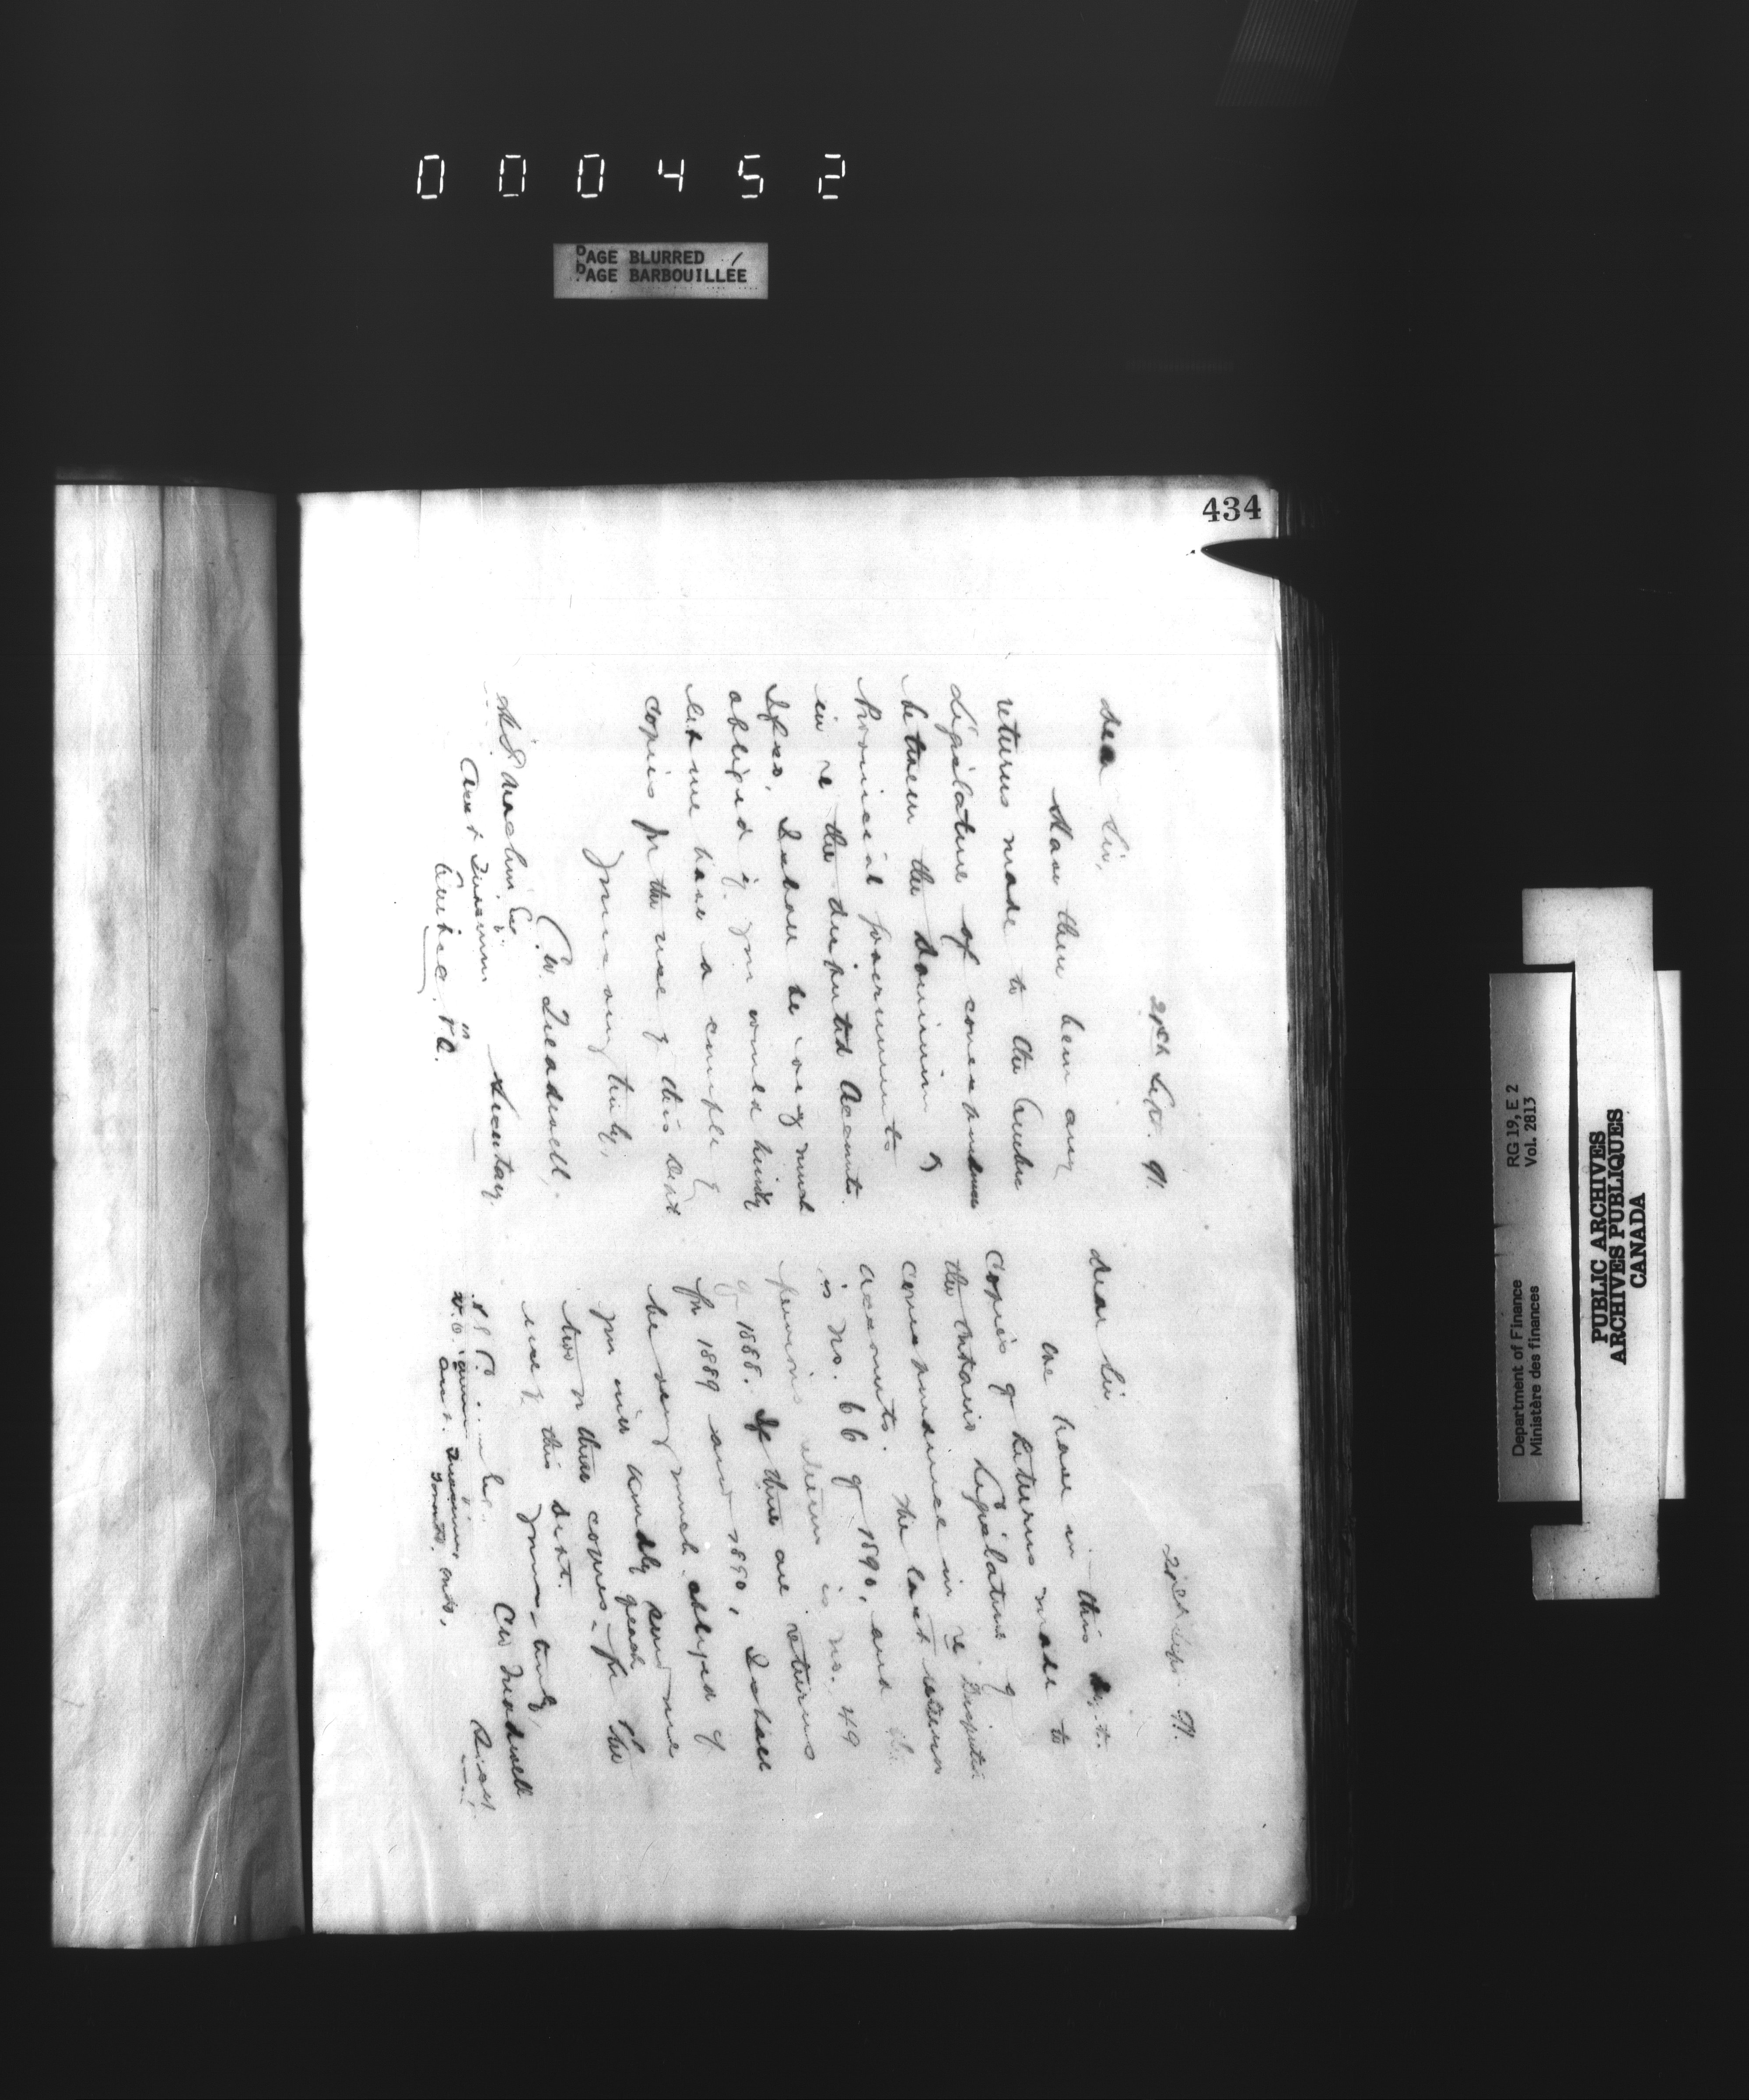 000452
PAGE BLURRED
PAGE BARBOUILLÉE
434
Sept. 91.
Dear Sir,
Have there been any
returns made to the Quebec
Legislature of correspondence
between the Dominion &
Provincial Governments
in re the disputed Accounts.
If so, I shall be very much
obliged if you would kindly
let me have a couple of
copies for the use of this Dept
Yours very truly,
C.W. Treadwell,
Secretary
Machin Esq
Asst Treasurer
Quebec, P.Q.
Sept. 91.
Dear Sir,
We have in this Dept.
copies of Returns made to
the Ontario Legislature of
correspondence in re Disputed
accounts. The last return
is No. 66 of 1890, and the
previous return is No. 49
of 1888. If there are returns
for 1889 and 1890, I shall
be very much obliged if
you will kindly send me
two or three copies of each for the
use of this Dept.
Yours truly,
CW Treadwell
Asst. Treasurer
Toronto, Ont.
RG 19, E 2
Vol. 2813
Department of Finance
Ministère des finances
PUBLIC ARCHIVES
ARCHIVES PUBLIQUES
CANADA